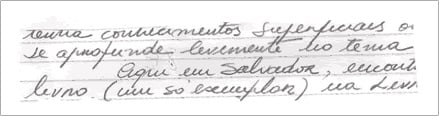 tenha conhecimentos superficiais o
se aprofunde levemente no tema
Aqui em Salvador, encont
livro (um só exemplar) na Livr